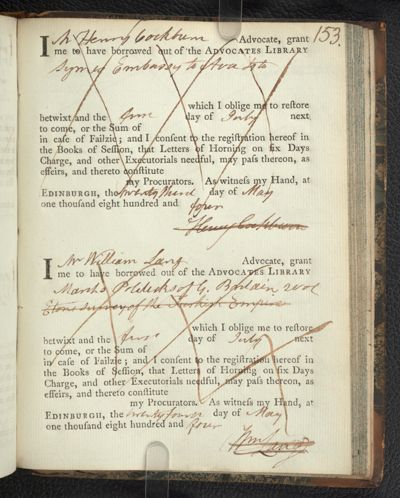 153.
I Mr Henry Cockburn Advocate, grant
me to have borrowed out of the ADVOCATES LIBRARY
Symes Embassy to Ava 4to
which I oblige me to reſtore
betwixt and the first day of July next
to come, or the Sum of
in caſe of Failzie; and I conſent to the regiſtration hereof in
the Books of Seſſion, that Letters of Horning on ſix Days
Charge, and other Executorials needful, may paſs thereon, as
effeirs, and thereto conſtitute
my Procurators. As witneſs my Hand, at
EDINBURGH, the twenty third day of May
one thouſand eight hundred and four
Henry Cockburn
I Mr William Lang Advocate, grant
me to have borrowed out of the ADVOCATES LIBRARY
Marsh's Politicks of G. Britain 2 vol
Etons Survey of the Turkish Empire
which I oblige me to reſtore
betwixt and the first day of July next
to come, or the Sum of
in caſe of Failzie; and I conſent to the regiſtration hereof in
the Books of Seſſion, that Letters of Horning on ſix Days
Charge, and other Executorials needful, may paſs thereon, as
effeirs, and thereto conſtitute
my Procurators. As witneſs my Hand, at
EDINBURGH, the twenty fourth day of May
one thouſand eight hundred and four
Wm
Lang